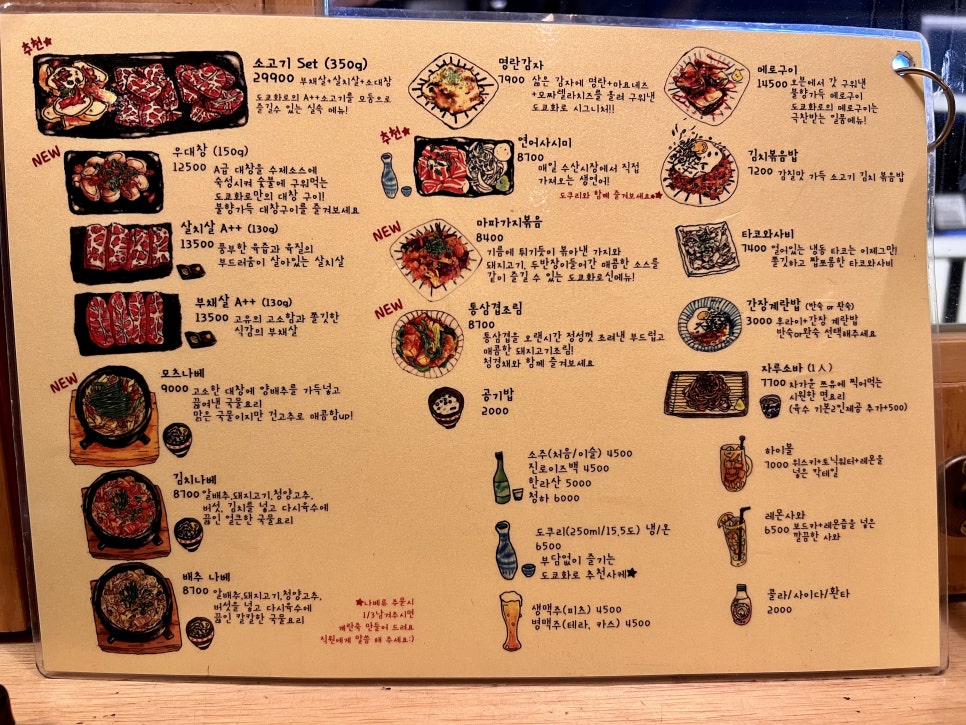 추천★
소고기 Set (350g)
29900 부채살+살치살+소대창
도쿄화로의 A++소고기를 모둠으로
즐길수 있는 실속 메뉴!
NEW
우대창 (150g)
12500 A급 대창을 수제소스에
숙성시켜 숯불에 구워먹는
도쿄화로만의 대창 구이!
불향가득 대창구이를 즐겨보세요
살치살 A++ (130g)
13500 풍부한 육즙과 육질의
부드러움이 살아있는 살치살
부채살 A++ (130g)
13500 고유의 고소함과 쫄깃한
식감의 부채살
NEW
모츠나베
9000 고소한 대창에 양배추를 가득넣고
끓여낸 국물요리
맑은 국물이지만 건고추로 매콤함up!
김치나베
8700 알배추,돼지고기,청양고추,
버섯, 김치를 넣고 다시육수에
끓인 얼큰한 국물요리
배추 나베
8700 알배추,돼지고기,청양고추,
버섯을 넣고 다시육수에
끓인 칼칼한 국물요리
★나베류 주문시
1/3남겨주시면
계란죽 만들어 드려요
직원에게 말씀 해 주세요:)
명란감자
7900 삶은 감자에 명란+마요네즈
+모짜렐라치즈를 올려 구워낸
도쿄화로 시그니처!!
추천★
연어사시미
8700
매일 수산시장에서 직접
가져오는 생연어!
도쿠리와 함께 즐겨보세요★
NEW
마파가지볶음
8400
기름에 튀기듯이 볶아낸 가지와
돼지고기, 두반장이들어간 매콤한 소스를
같이 즐길 수 있는 도쿄화로신메뉴!
NEW
통삼겹조림
8700
통삼겹을 오랜시간 정성껏 조려낸 부드럽고
매콤한 돼지고기조림!
청경채와 함께 즐겨보세요
공기밥
2000
소주(처음/이슬) 4500
진로이즈백 4500
한라산 5000
청하 6000
도쿠리(250ml/15.5도) 냉/온
6500
부담없이 즐기는
도쿄화로 추천사케★
생맥주(미츠) 4500
병맥주(테라, 카스) 4500
메로구이
14500 오븐에서 갓 구워낸
불향가득 메로구이
도쿄화로의 메로구이는
극찬받는 일품메뉴!
김치볶음밥
7200 감칠맛 가득 소고기 김치 볶음밥
타코와사비
7400 얼어있는 냉동 타코는 이제그만!
쫄깃하고 짭쪼름한 타코와사비
간장계란밥 (반숙 or 완숙)
3000 후라이+간장 계란밥
반숙or완숙 선택해주세요
자루소바 (1人)
7700 차가운 쯔유에 찍어먹는
시원한 면요리
(육수 기본2인제공 추가+500)
하이볼
7000 위스키+토닉워터+레몬을
넣은 칵테일
레몬사와
6500 보드카+레몬즙을 넣은
깔끔한 사와
콜라/사이다/환타
2000